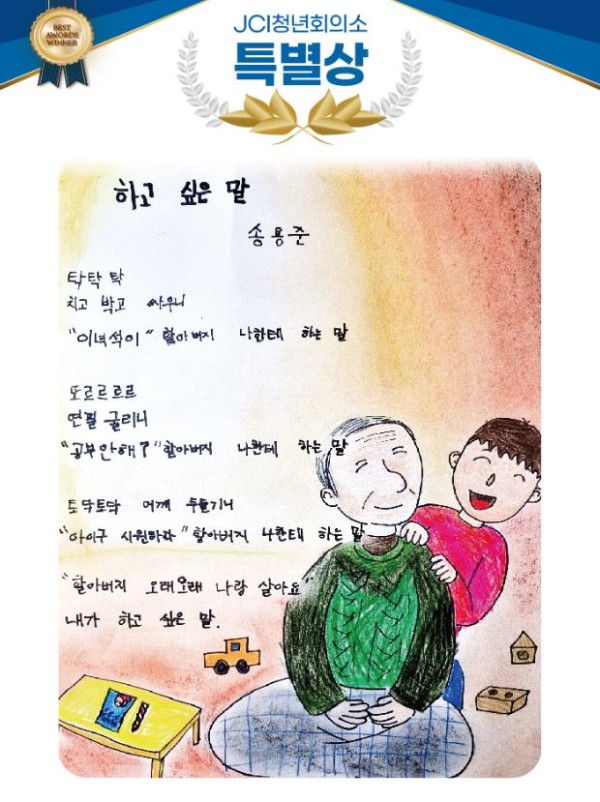 BEST
AWORDS
WINNER
JCI청년회의소
특별상
하고 싶은 말
송용준
탁탁 탁
치고 박고 싸우니
"이녀석이" 할아버지 나한테 하는 말
또르르르르
연필 굴리니
"공부안해?" 할아버지 나한테 하는 말
토닥토닥 어깨 두들기니
"아이구 시원하다" 할아버지 나한테 하는 말
"할아버지 오래오래 나랑 살아요"
내가 하고 싶은 말.